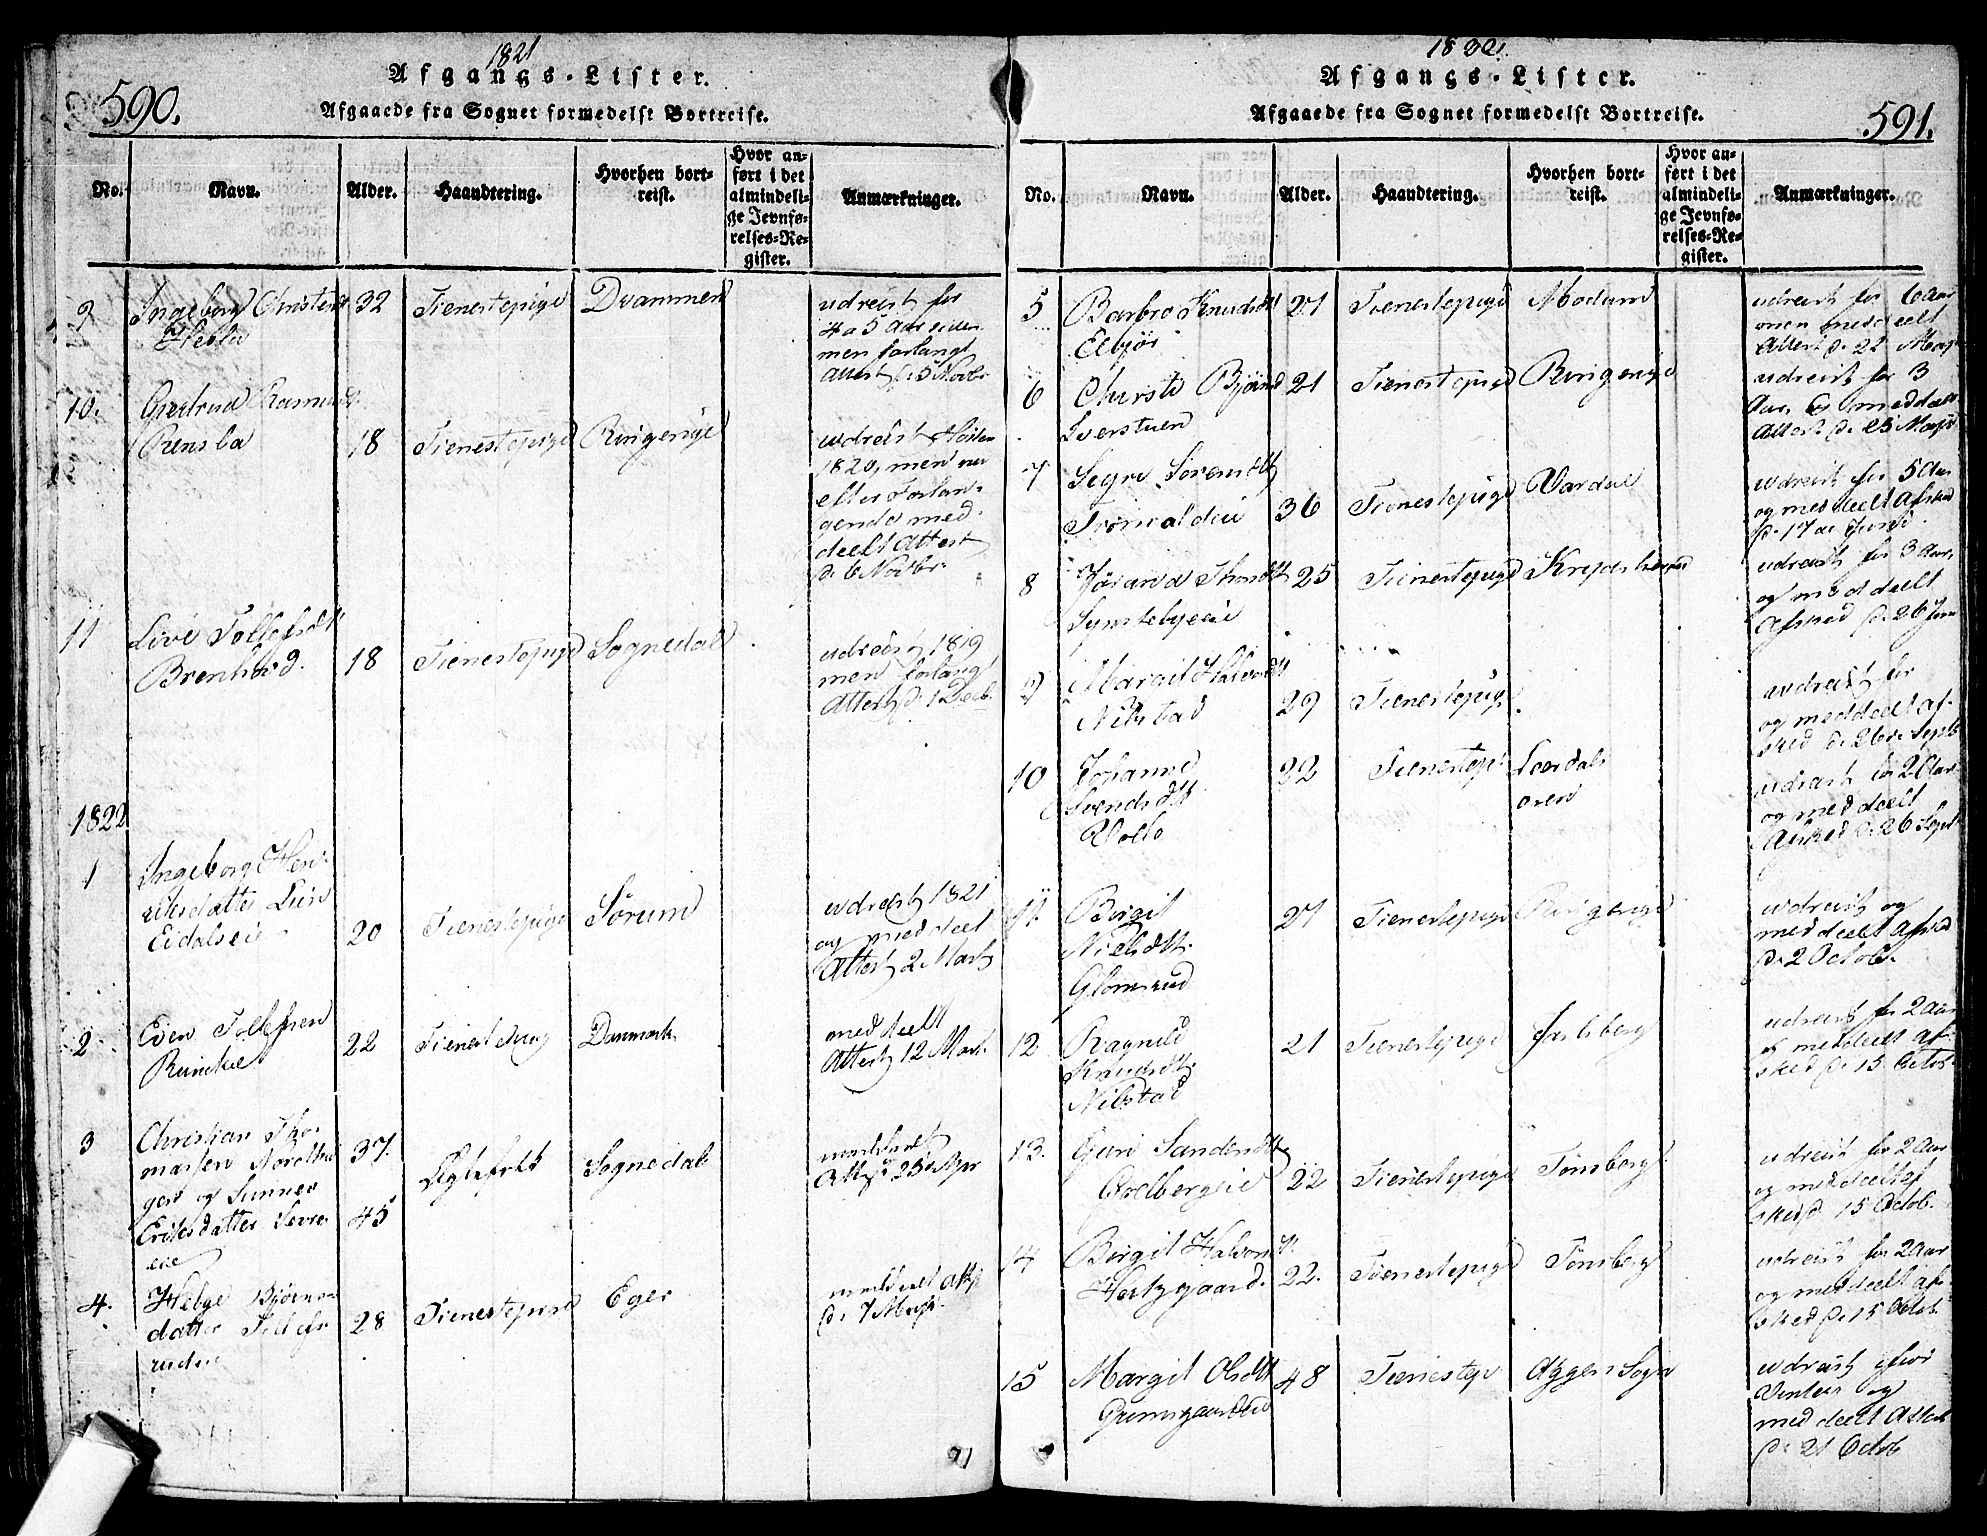 1821
590.
Afgangs-Lister.
Afgaaede fra Sognet formedelst Bortreise.
No.
Navn.
Alder.
Haandtering.
Hvorhen bort-
reist.
Hvor an-
ført i det
almindeli-
ge Jevnfø-
relses-Re-
gister.
Anmærkninger.
9
Ingeborg Christensd
32
Tienestepige
Drammen
Hesla
udreist for
4 a 5 Aar siden
men forlangt
Attest d. 5 Novbr
10.
Giertrud Rasmusd
Rensla
18
Tienestepige
Ringerige
udreist Høsten
1820, men nu
efter Forlan-
gende med-
deelt Attest
d. 6 Novbr.
11
Live Tollefsdtt
Brenhovd.
18
Tienestepige
Sognedal
udreist 1819
men forlangt
Attest d. 1 Decb.
1822
1
Ingeborg Hen-
riksdatter Lien
Eidalseie
20
Tienestepige
Sørum
udreist 1821
og meddeelt
Attest 2 Marts
2
Even Tollefsen
22
Danmark
meddeelt
Attest 12 Mart.
3
Christian Tho-
massen
37.
Egtefolk
Sognedal
gen og Sunnev
Eriksdatter
45
eie
Att. d. 23 Apr
4.
Helge Bjørns-
datter
28
Tienestepige
Eger
meddeelt Att.
d. 7 Maji.
1822.
591.
Afgangs-Lister.
Afgaaede fra Sognet formedelst Bortreise.
No.
Navn.
Alder.
Haandtering.
Hvorhen bort-
reist.
Hvor an-
ført i det
almindeli-
ge Jevnfø-
relses-Re-
gister.
Anmærkninger.
5
Barbro Knudsdtt
27
Tienestepige
Modum
udreist for 6 Aar
men meddeelt
Attest d. 22 Maji
6
21
Tienestepige
Ringerige
udreist for 3
Aar, og meddeelt
Attest d. 23 Maji
7
Sigri Sørensdtt
36
Tienestepige
Vardal
udreist for 5 Aar
og meddeelt Afsked
d. 17de Junii.
8
Jørand Thorsdtt
25
Tienestepige
udreist for 3 Aar,
og meddeelt
Afsked d. 26 Juni
9
Margit Halvordtt
Nibstad
29
Tienestepige
udreist for
og meddeelt af-
sked d. 26de Septb
10
Johanne
Svendsdtt
22
Tienestepi
Leerdals
øren
udreist for 2 Aar
og meddeelt
Afsked d. 26 Sept
11.
Birgit
Nielsdtt.
Glømsrud
27
Tienestepige
Ringerige
udreist og
meddeelt Afsked
d. 2 Octob.
12
Ragnild
Knudsdtt.
Nibstad
21
Tienestepige
Jarlsberg
udreist for 2 Aar
og meddeelt af-
sked d. 15 Octob.
13.
Guri Sandersdtt
Golbergeie
22
Tienestepige
Tønsberg
udreist for 2 Aar
og meddeelt af
sked d. 15 Octob.
14
Birgit Halvordtt.
22.
Tienestepige
Tønsberg
udreist for 2 Aar
og meddeelt af-
sked d. 15 Octob.
15
Margit Olsdtt
48
Tienestep
Aggers Sogn
udreist ifior
Vinter og
meddeelt Attest
d. 21 Octob